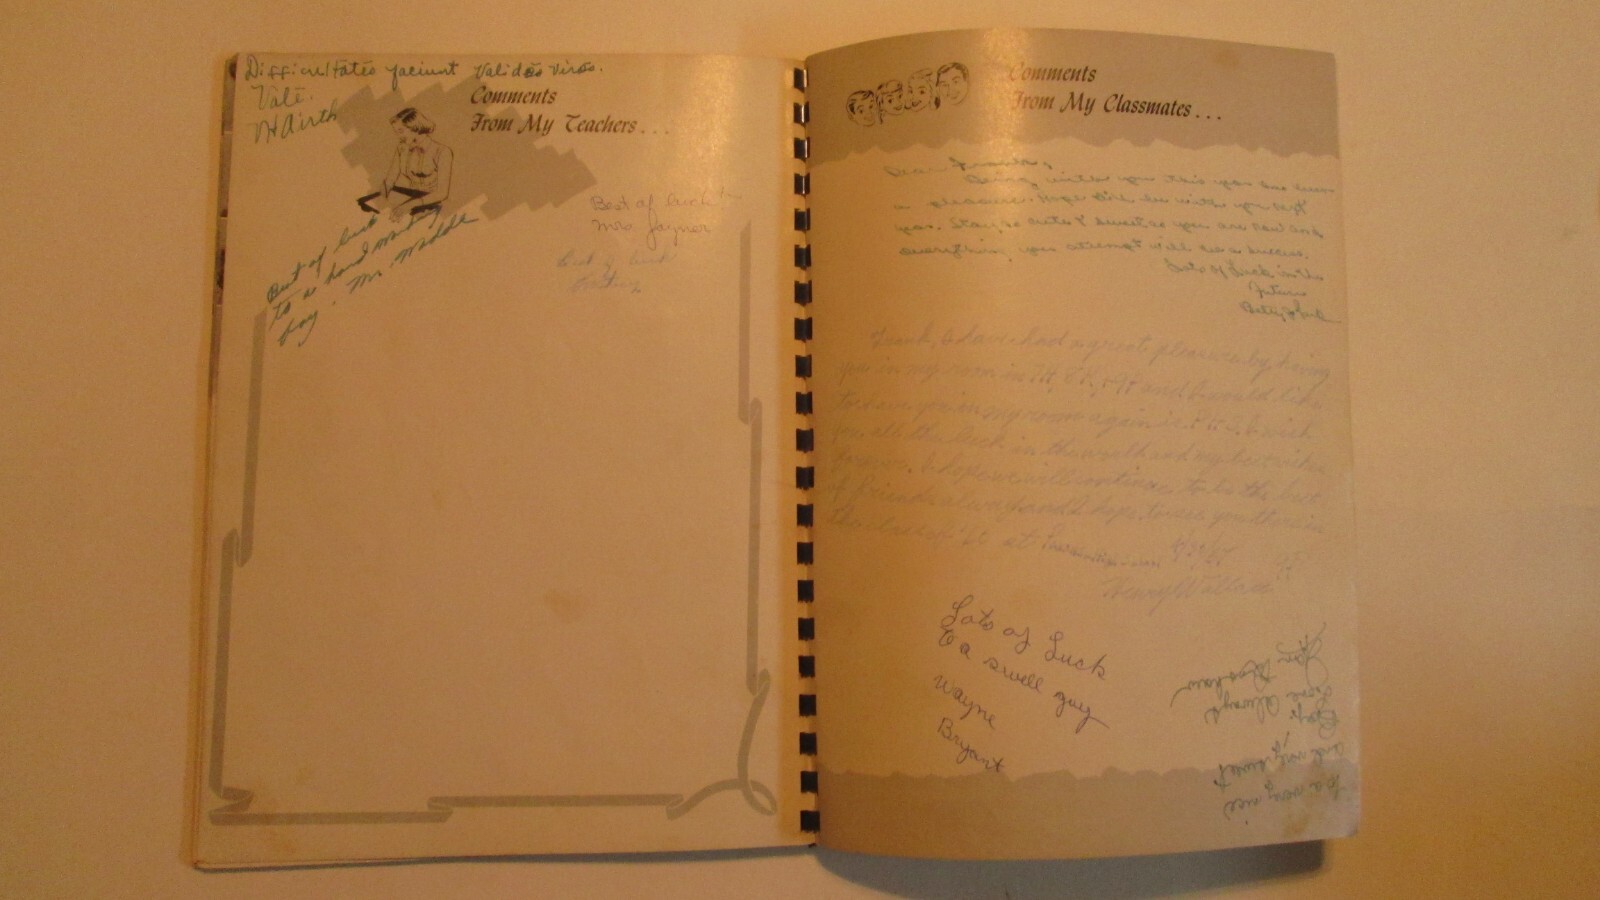 Difficultates faciunt validos viros.
Vale.
Comments
From My Teachers...
Best of luck
to a hard working
boy. Mr.
Best of luck
Mrs. Joyner
Best of luck
Comments
From My Classmates...
Dear Frank,
Being with you this year has been
a pleasure. Hope I'll be with you next
year. Stay as cute & sweet as you are now and
everything you attempt will be a success.
Lots of Luck in the
Future
Betty
Frank, I have had a great pleasure by having
you in my room in 7th, 8th, 9th and I would like
to have you in my room again in I wish
you all the luck in the world and my best wishes
forever. I hope we will continue to be the best
of friends always and I hope to see you there in
the class of at
Henry Wallace
Lots of Luck
to a swell guy
Wayne
Bryant
To a very nice
and very sweet
Boy.
Love Always